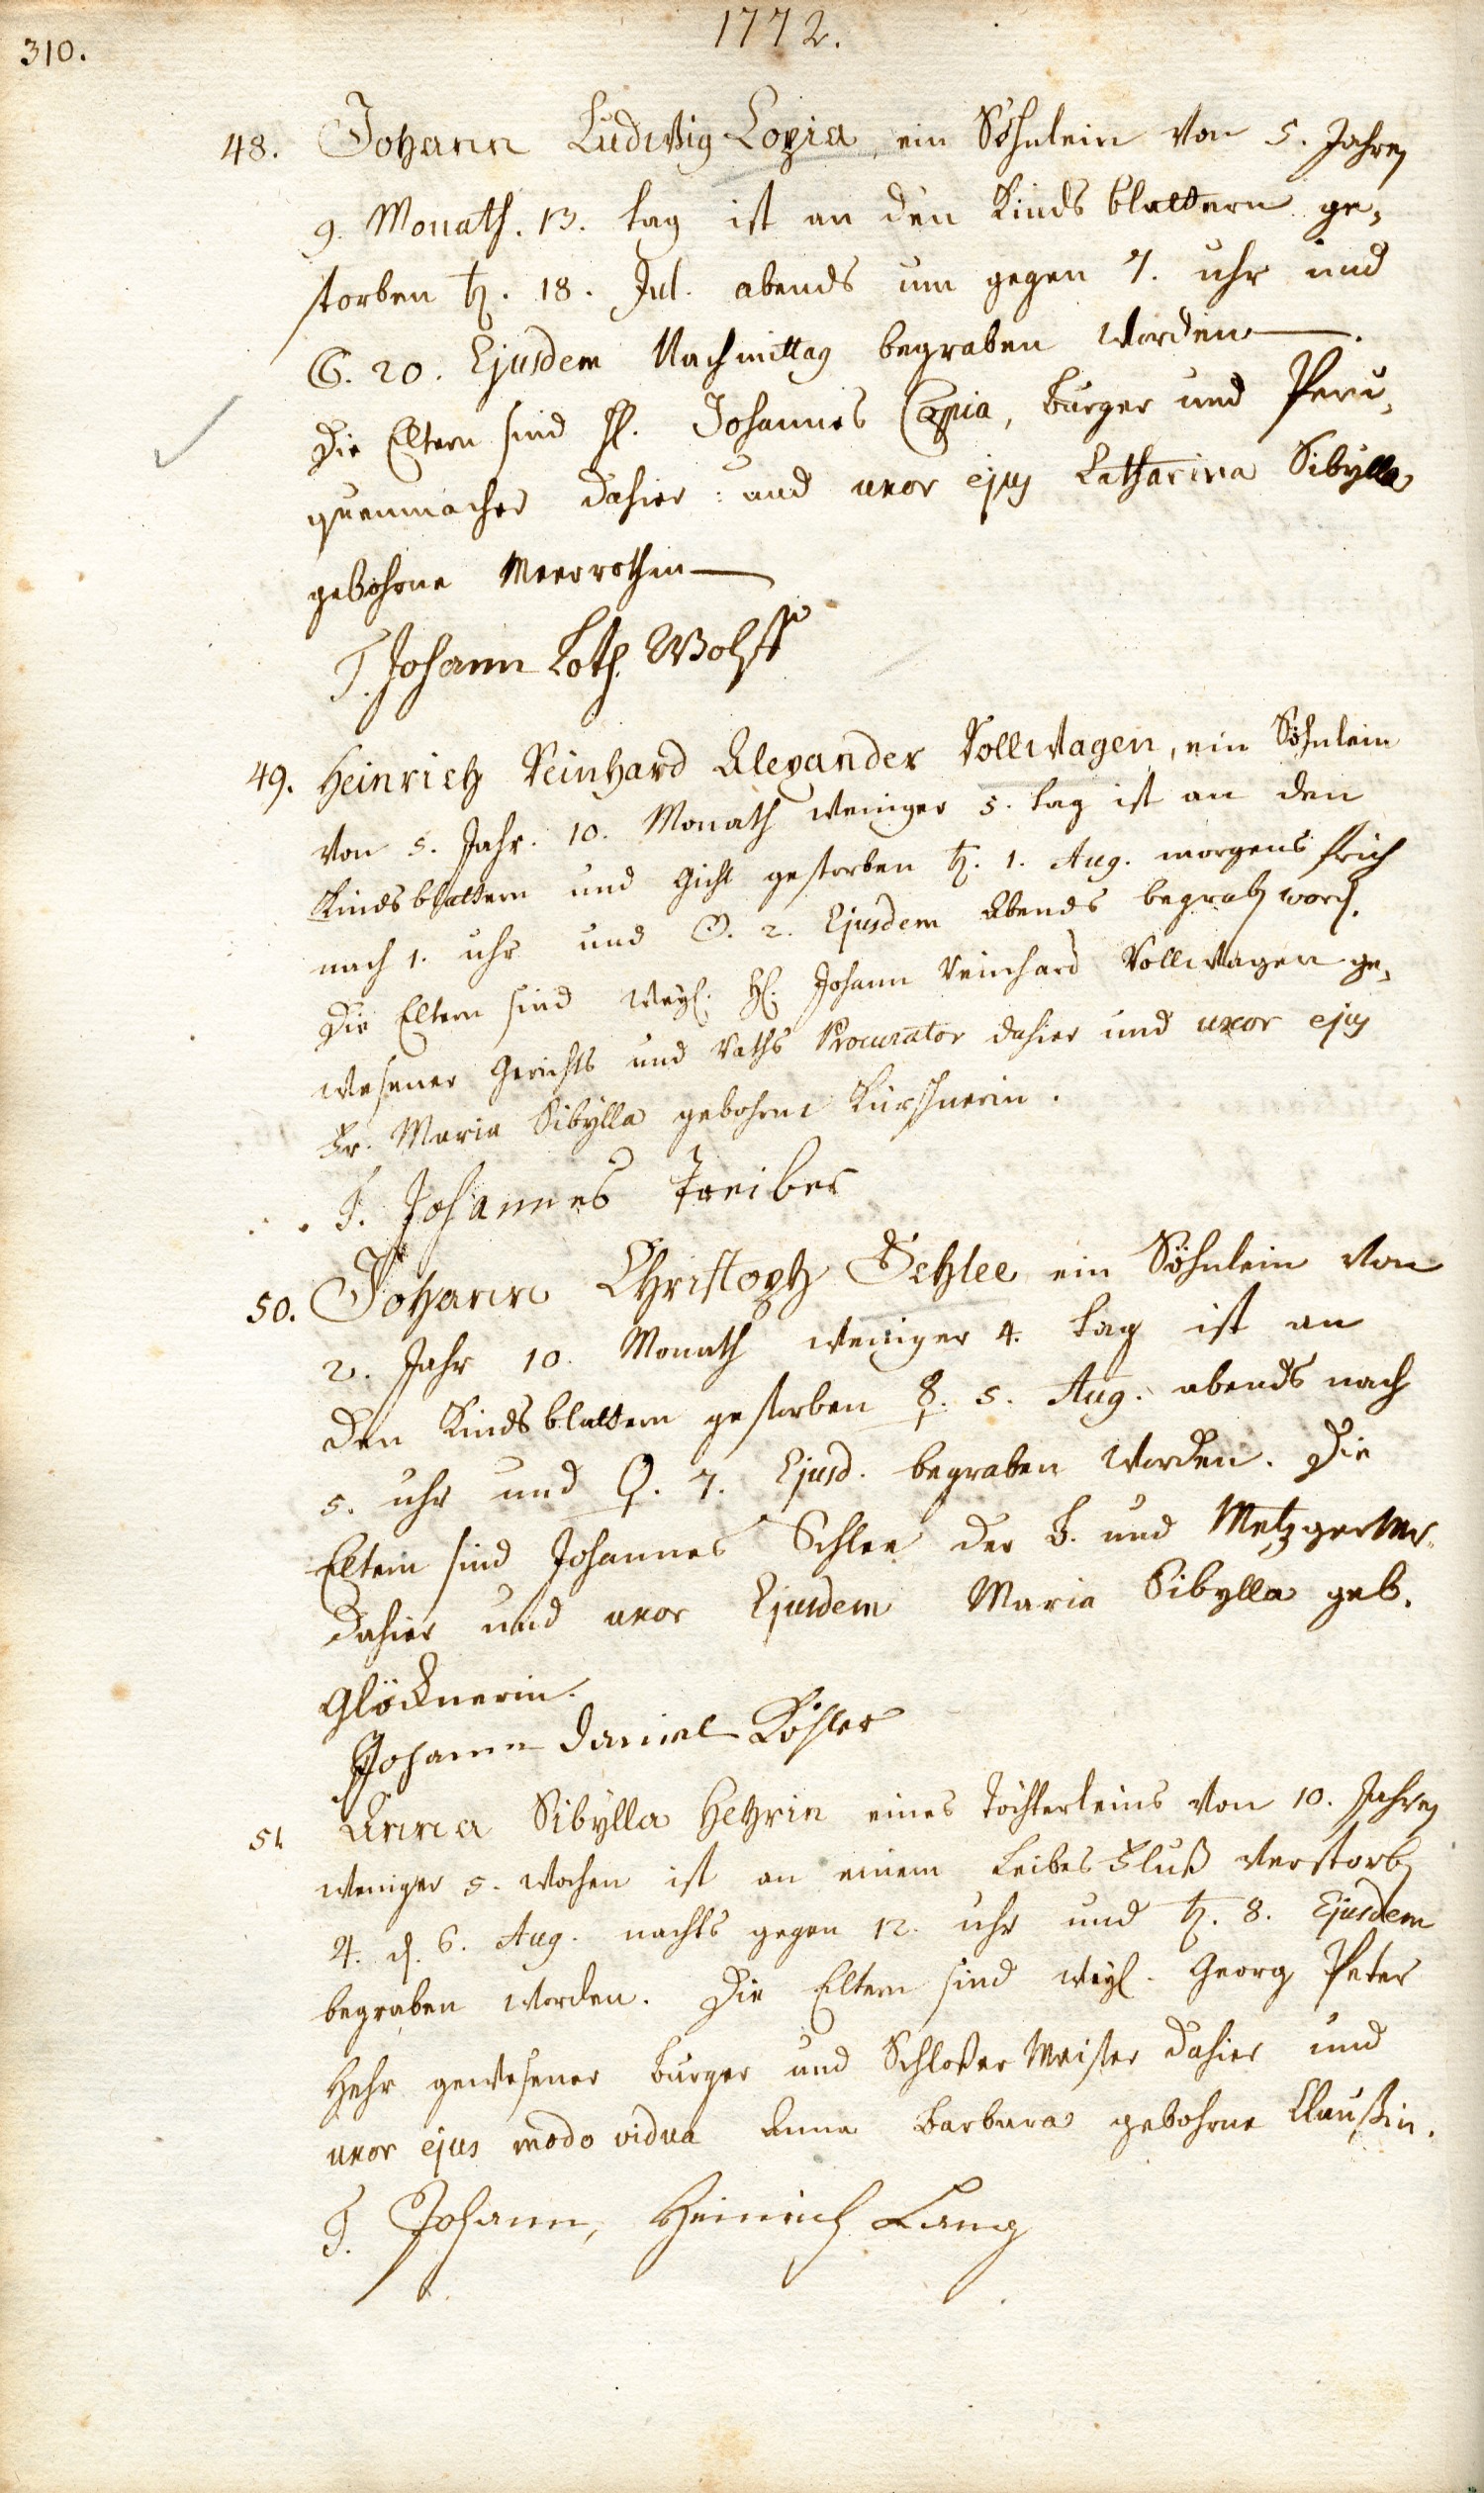 310.
1772.
48. Johann Ludwig Copia, ein Söhnlein von 5. Jahren
9. Monath. 13. tag ist an den Kinds blattern ge-
storben ♄. 18. Jul. abends um gegen 7. uhr und
☾. 20. Ejusdem Nachmittag begraben worden.
Die Eltern sind H. Johannes Copia, burger und Peru-
quenmacher dahier: und uxor ejus Catharina Sibylla
gebohrne Meerrothin
T. Johann Loth. Wolff
49. Heinrich Reinhard Alexander Vollwagen, ein Söhnlein
von 5. Jahr. 10. Monath weniger 5. tag ist an den
Kindsblattern und Gicht gestorben ♄. 1. Aug. morgens früh
nach 1. uhr und ☉. 2. Ejusdem Abends begrab word.
Die Eltern sind weyl. H. Johann Reinhard Vollwagen ge-
wesener Gerichts und Raths Procurator dahier und uxor ejus
Fr. Maria Sibylla gebohrne Kürschnerin.
T. Johannes Treiber
50. Johann Christoph Schlee ein Söhnlein von
2. Jahr 10. Monath weniger 4. tag ist an
den Kindsblattern gestorben ☿. 5. Aug. abends nach
5. uhr und ♀. 7. Ejusd. begraben worden. Die
Eltern sind Johannes Schlee der B. und Metzger Mr.
dahier und uxor Ejusdem Maria Sibylla geb.
Glöcknerin.
Johann Daniel Köhler
51. Anna Sibylla Hehrin eines Töchterleins von 10. Jahren
weniger 5. wochen ist an einem Leibes Fluß verstorben
♃. d. 6. Aug. nachts gegen 12. uhr und ♄. 8. Ejusdem
begraben worden. Die Eltern sind weyl. Georg Peter
Hehr gewesener burger und Schloßer Meister dahier und
uxor ejus modo vidua Anna Barbara gebohrne Claußin.
T. Johann, Heinrich Lang